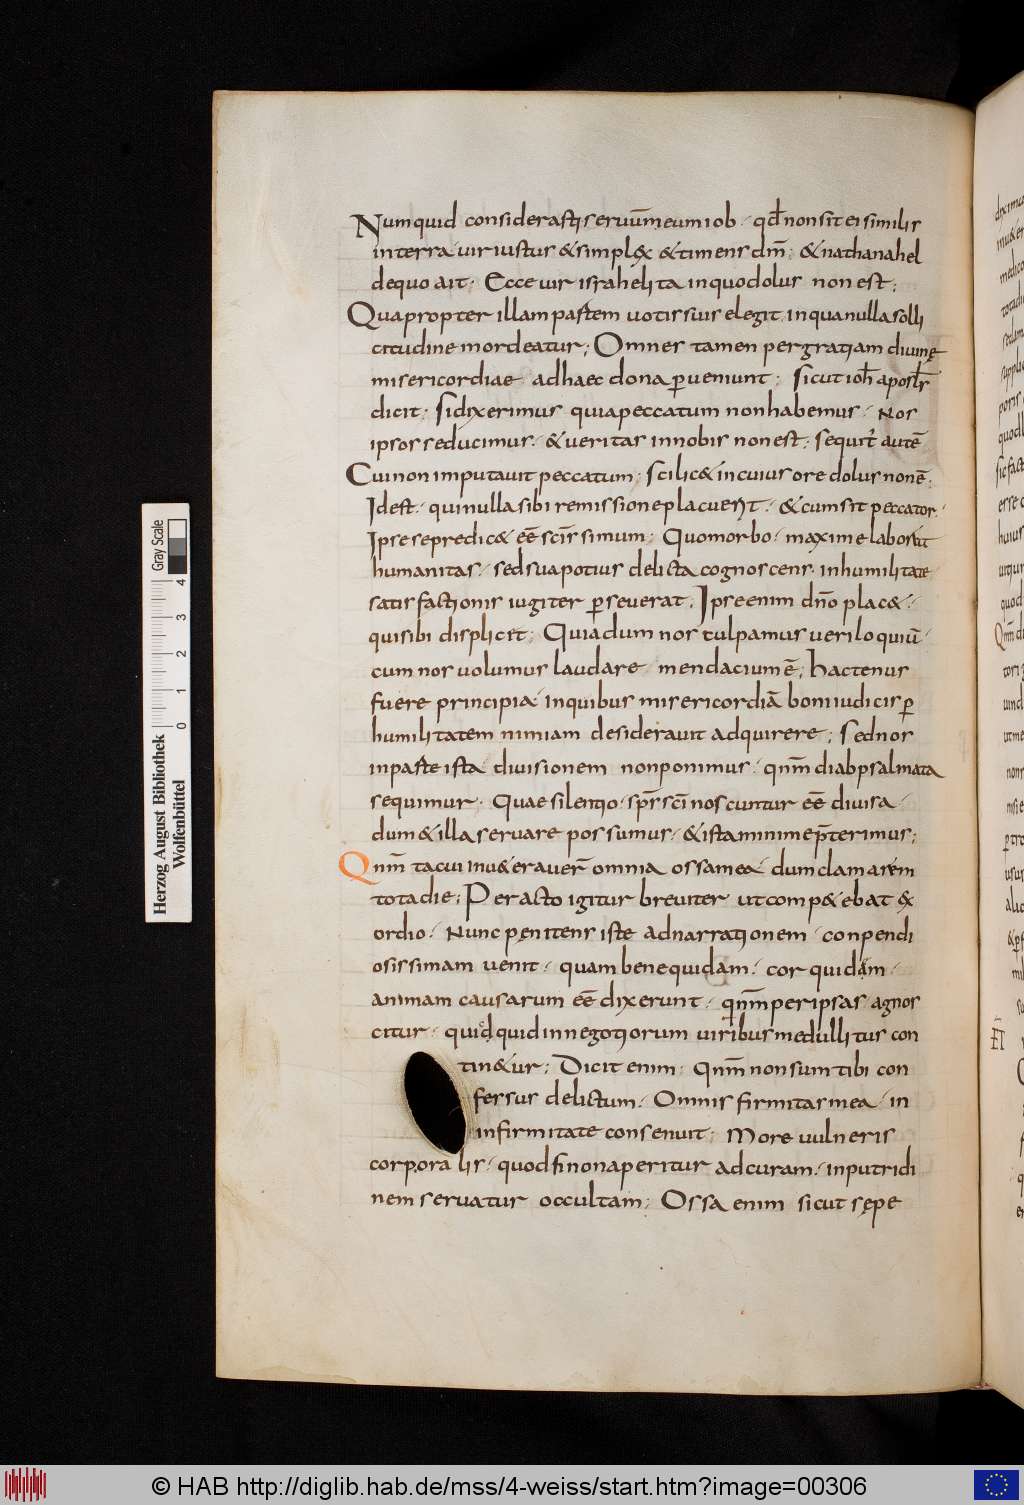 Numquid considerasti seruū meum iob · qđ non sit ei similis
in terra · uir iustus & simplex & timens dm̄ ; & nathanahel
de quo ait · Ecce uir israhelita in quo dolus non est ;
Quapropter illam partem uotis suis elegit in qua nulla solli
citudine mordeatur ; Omnes tamen per gratiam diuinę
misericordiae ad haec dona ꝑueniunt ; sicut ioh̄ aposłr
dicit · si dixerimus quia peccatum non habemus · Nos
ipsos seducimus · & ueritas in nobis non est ; sequit̄ autē
Cui non imputauit peccatum ; scilic& in cuius ore dolus non ē ;
Id est · qui nulla sibi remissione placuerit · & cum sit peccator ·
Ipse se predic& eē scīssimum ; Quo morbo · maxime laborat
humanitas · sed sua potius delicta cognoscens in humilitate
satisfactionis iugiter ꝑseuerat ; Ipse enim dn̄o plac& ·
qui sibi displicit ; Quia dum nos culpamus ueriloquiū ·
cum nos uolumus laudare mendacium ē ; hactenus
fuere principia · in quibus misericordiā boni iudicis ꝑ
humilitatem nimiam desiderauit adquirere ; Sed nos
in parte ista diuisionem non ponimus · qnm̄ diabpsalmata
sequimur · Quae silentio sp̄s sc̄i noscuntur eē diuisa ·
dum & illa seruare possumus · & ista minime p̄terimus ;
Qnm̄ tacui inu&erauer̄ omnia ossa mea · dum clamarem
tota die ; Peracto igitur breuiter ut comp&ebat ex
ordio · Nunc pęnitens iste ad narrationem conpendi
osissimam uenit · quam bene quidam · cor quidam ·
animam causarum eē dixerunt · qnm̄ per ipsas agnos
citur · quidquid in negotiorum uiribus medullitus con
tin&ur ; Dicit enim ; Qnm̄ non sum tibi con
fersus delictum · Omnis firmitas mea · in
infirmitate consenuit ; More uulneris
corporalis · quod si non aperitur ad curam · in putridi
nem seruatur occultam ; Ossa enim sicut sępe
Herzog August Bibliothek
Wolfenbüttel
0 1 2 3 4
Gray Scale
© HAB http://diglib.hab.de/mss/4-weiss/start.htm?image=00306